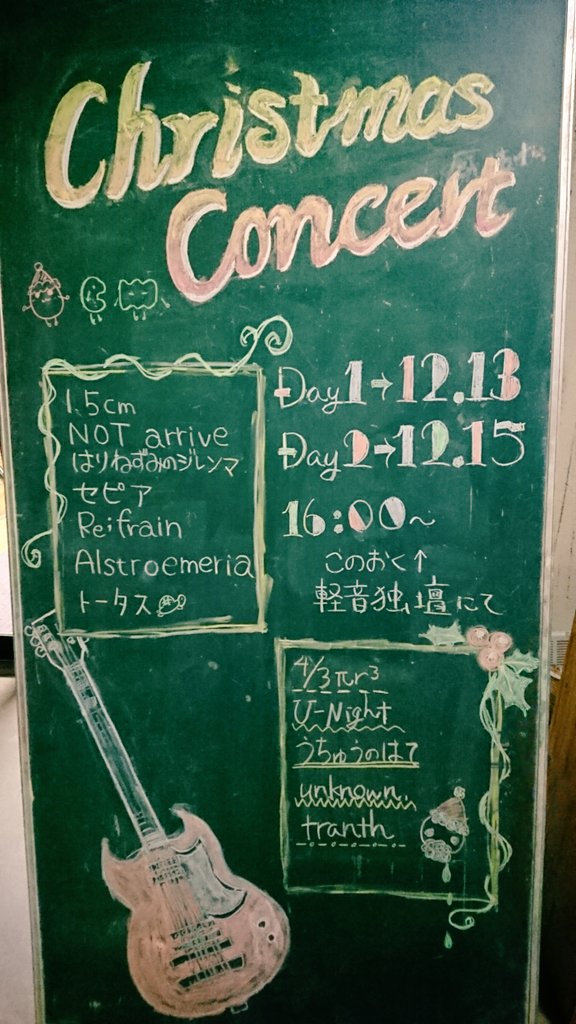 Christmas
Concert
1.5cm
NOT arrive
はりねずみのジレンマ
セピア
Re:frain
Alstroemeria
トータス
Day1→12.13
Day2→12.15
16:00～
このおく↑
軽音独壇にて
4/3πr³
U-Night
うちゅうのはて
unknown
tranth